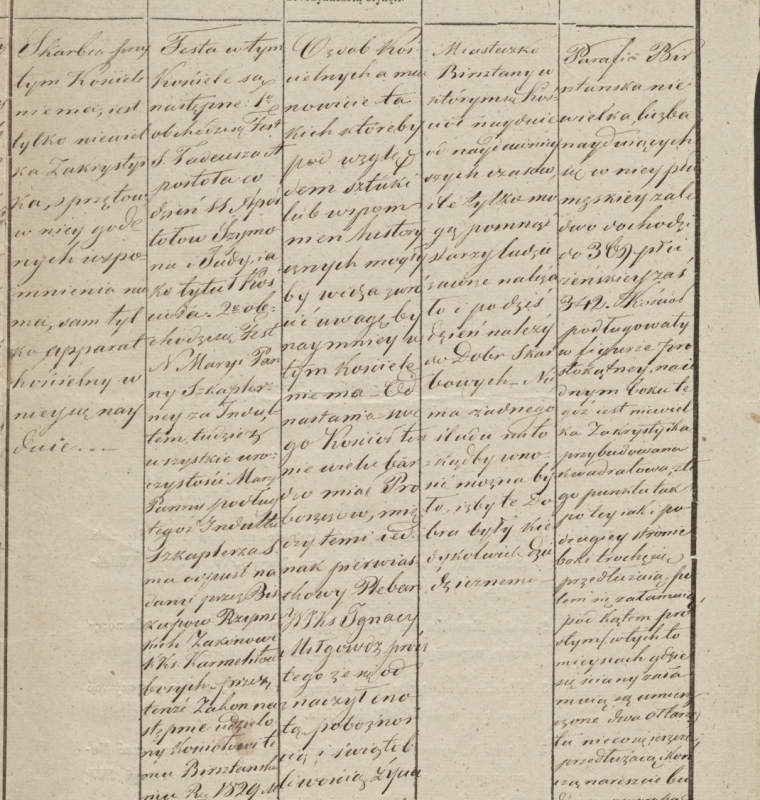 Skarbca przy
tym Kościele
niema, iest
tylko niewiel
ka Zakrystyi
ka, sprzętow
w niey gode
nych wspo-
mnienia nie
ma, sam tyl
ko apparat
kościelny w
niey się nay
duie. —
Festa w tym
Kościele są
następne: 1e
obchodzi się Fest
S. Tadeusza A
postoła co
dzień SS. Apos
tołow Szymo
na i Judy, ia
ko tytuł Koś
cioła. 2e ob-
chodzi się Fest
N. Maryi Pan
ny Szkaplerz-
ney za Indul
tem, tudzież
wszystkie uro-
czystości Maryi
Panny podług
tegoż Indultu
Szkaplerza S.
ma odpust na
dany przez Bis
kupow Rzyms
kich Zakonowi
XXs. Karmelitow
bosych, przez
tenże Zakon na
stępnie udzielo
ny Kościołowi te
mu Birsztańskie
mu Ru 1829
Ozdob Koś-
cielnych a mia
nowicie ta
kich któreby
pod wzglę-
dem sztuki
lub wspom
nień history
cznych mogły
by widza zwró
cić uwagę by
naymniey w
tym Kościele
niema. Od
nastania swe
go Kościół ten
nie wielu bar
dzo miał Pro
boszczow, mię
dzy temi ied-
nak pierwias
tkowy Pleban
Xs Ignacy
Miłgowdz prócz
tego że się od
znaczył cno
tą, pobożnoś
cią i świętob
liwością życia
Miasteczko
Birsztany w
którym się Koś
cioł nayduie
od naydawniey
szych czasow,
ile tylko mo
gą pomnąć
starzy ludzie
zawsze należa
ło i po dziś
dzień należy
do Dobr Skar
bowych. Nie
ma żadnego
śladu nito
zkądby wno-
sić można by
ło, iżby te Do
bra były kie
dykolwiek dzie
dzicznemi
Parafia Bir
sztanska nie
wielka, liczba
nayduiących
się w niey płci
męzkiey zale
dwo dochodzi
do 369, płci
żeńskiey zaś
342. Kościoł
podługowaty
w figurze pro
stokątney, na ied
dnym boku te
goż iest niewiel
ka Zakrystyika
przybudowana
kwadratowa, z te
go punktu tak
po tey iak i po
drugiey stronie
boki trochę się
przedłużaią, po
tem się załamuią
pod kątem pro
stym, w tych to
mieyscach gdzie
się ściany zała
muią są umiesz
czone dwa ołtarze
tu nieco się ieszcze
przedłużaią, koń
czą nareszcie bu